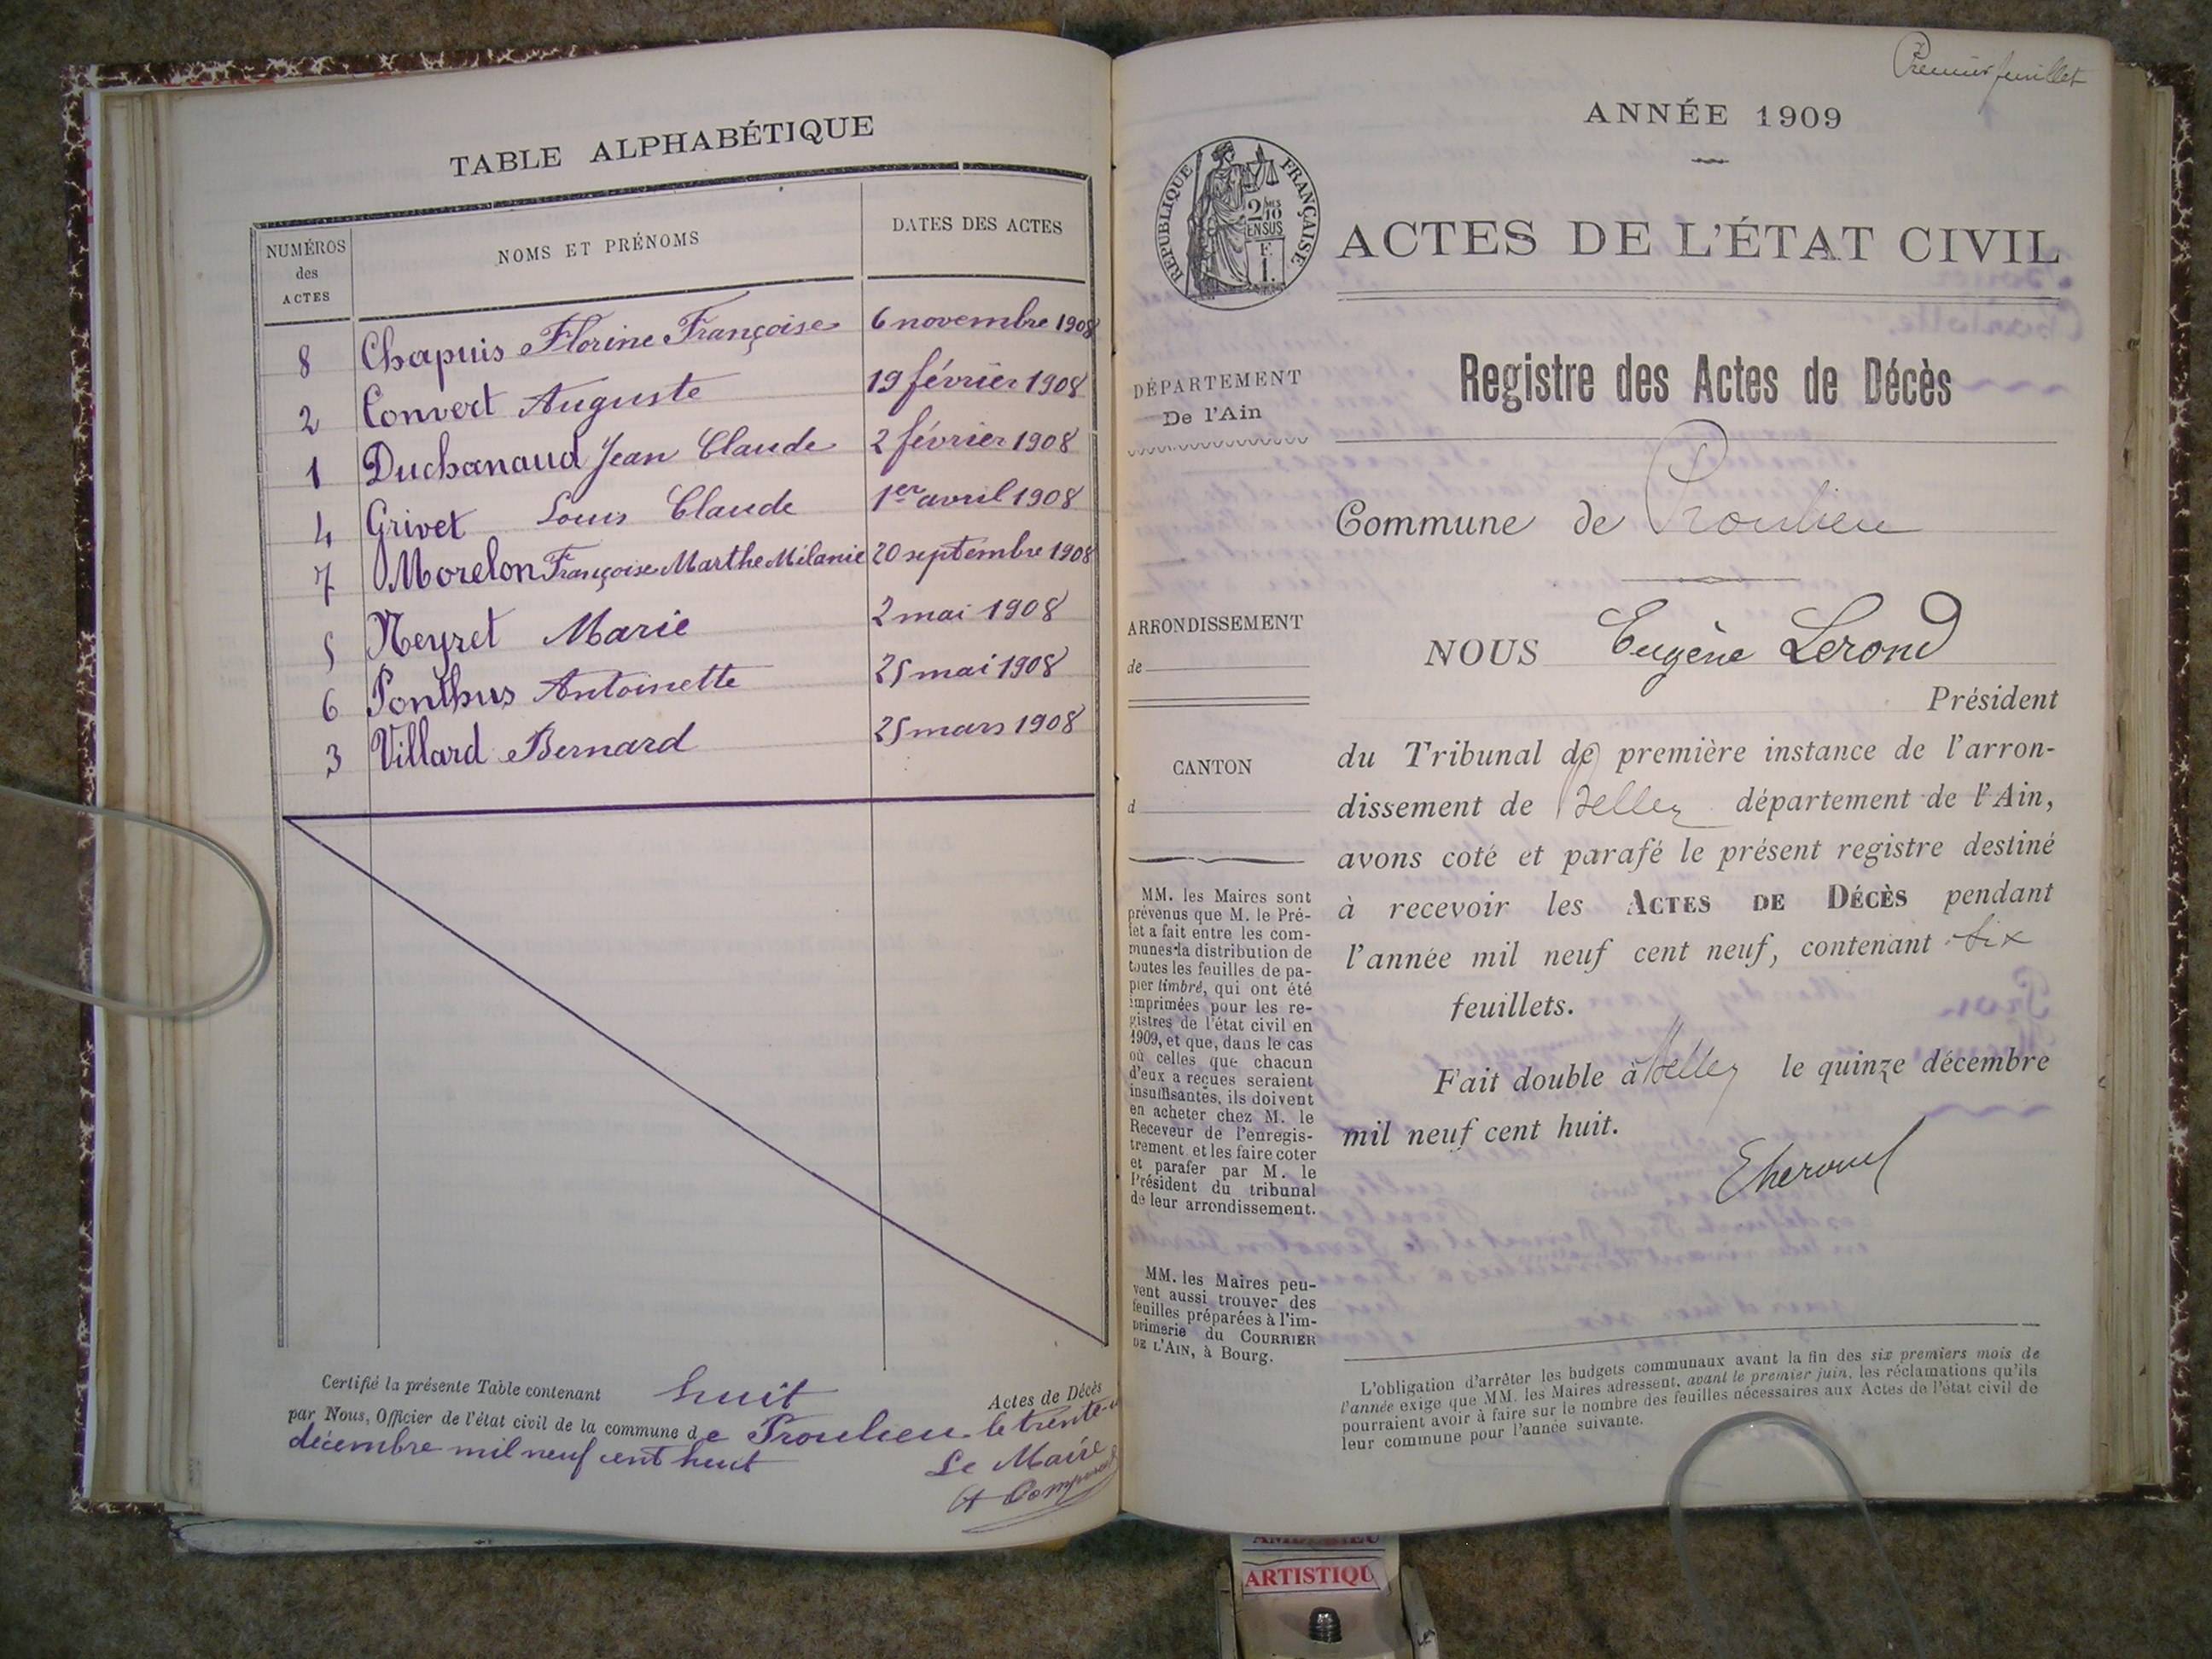 TABLE ALPHABÉTIQUE
NUMÉROS des ACTES
NOMS ET PRÉNOMS
DATES DES ACTES
8 Chapuis Florine Françoise 6 novembre 1908
2 Convert Auguste 19 février 1908
1 Duchanaud Jean Claude 2 février 1908
4 Grivet Louis Claude 1er avril 1908
7 Morelon Françoise Marthe Mélanie 20 septembre 1908
5 Neyret Marie 2 mai 1908
6 Ponthus Antoinette 25 mai 1908
3 Villard Bernard 25 mars 1908
Certifié la présente Table contenant huit Actes de Décès
par Nous, Officier de l'état civil de la commune de Proulieu le trente
décembre mil neuf cent huit
Le Maire
Premier feuillet
ANNÉE 1909
RÉPUBLIQUE FRANÇAISE
2/10 EN SUS
F. 1.
ACTES DE L'ÉTAT CIVIL
DÉPARTEMENT
De l'Ain
ARRONDISSEMENT
de
CANTON
d
MM. les Maires sont
prévenus que M. le Pré-
fet a fait entre les com-
munes la distribution de
toutes les feuilles de pa-
pier timbré, qui ont été
imprimées pour les re-
gistres de l'état civil en
1909, et que, dans le cas
où celles que chacun
d'eux a reçues seraient
insuffisantes, ils doivent
en acheter chez M. le
Receveur de l'enregis-
trement et les faire coter
et parafer par M. le
Président du tribunal
de leur arrondissement.
MM. les Maires peu-
vent aussi trouver des
feuilles préparées à l'im-
primerie du COURRIER
DE L'AIN, à Bourg.
Registre des Actes de Décès
Commune de Proulieu
NOUS Eugène Lerond
Président
du Tribunal de première instance de l'arron-
dissement de Belley département de l'Ain,
avons coté et parafé le présent registre destiné
à recevoir les ACTES DE DÉCÈS pendant
l'année mil neuf cent neuf, contenant six
feuillets.
Fait double à Belley le quinze décembre
mil neuf cent huit.
L'obligation d'arrêter les budgets communaux avant la fin des six premiers mois de
l'année exige que MM. les Maires adressent, avant le premier juin, les réclamations qu'ils
pourraient avoir à faire sur le nombre des feuilles nécessaires aux Actes de l'état civil de
leur commune pour l'année suivante.
ARTISTIQU